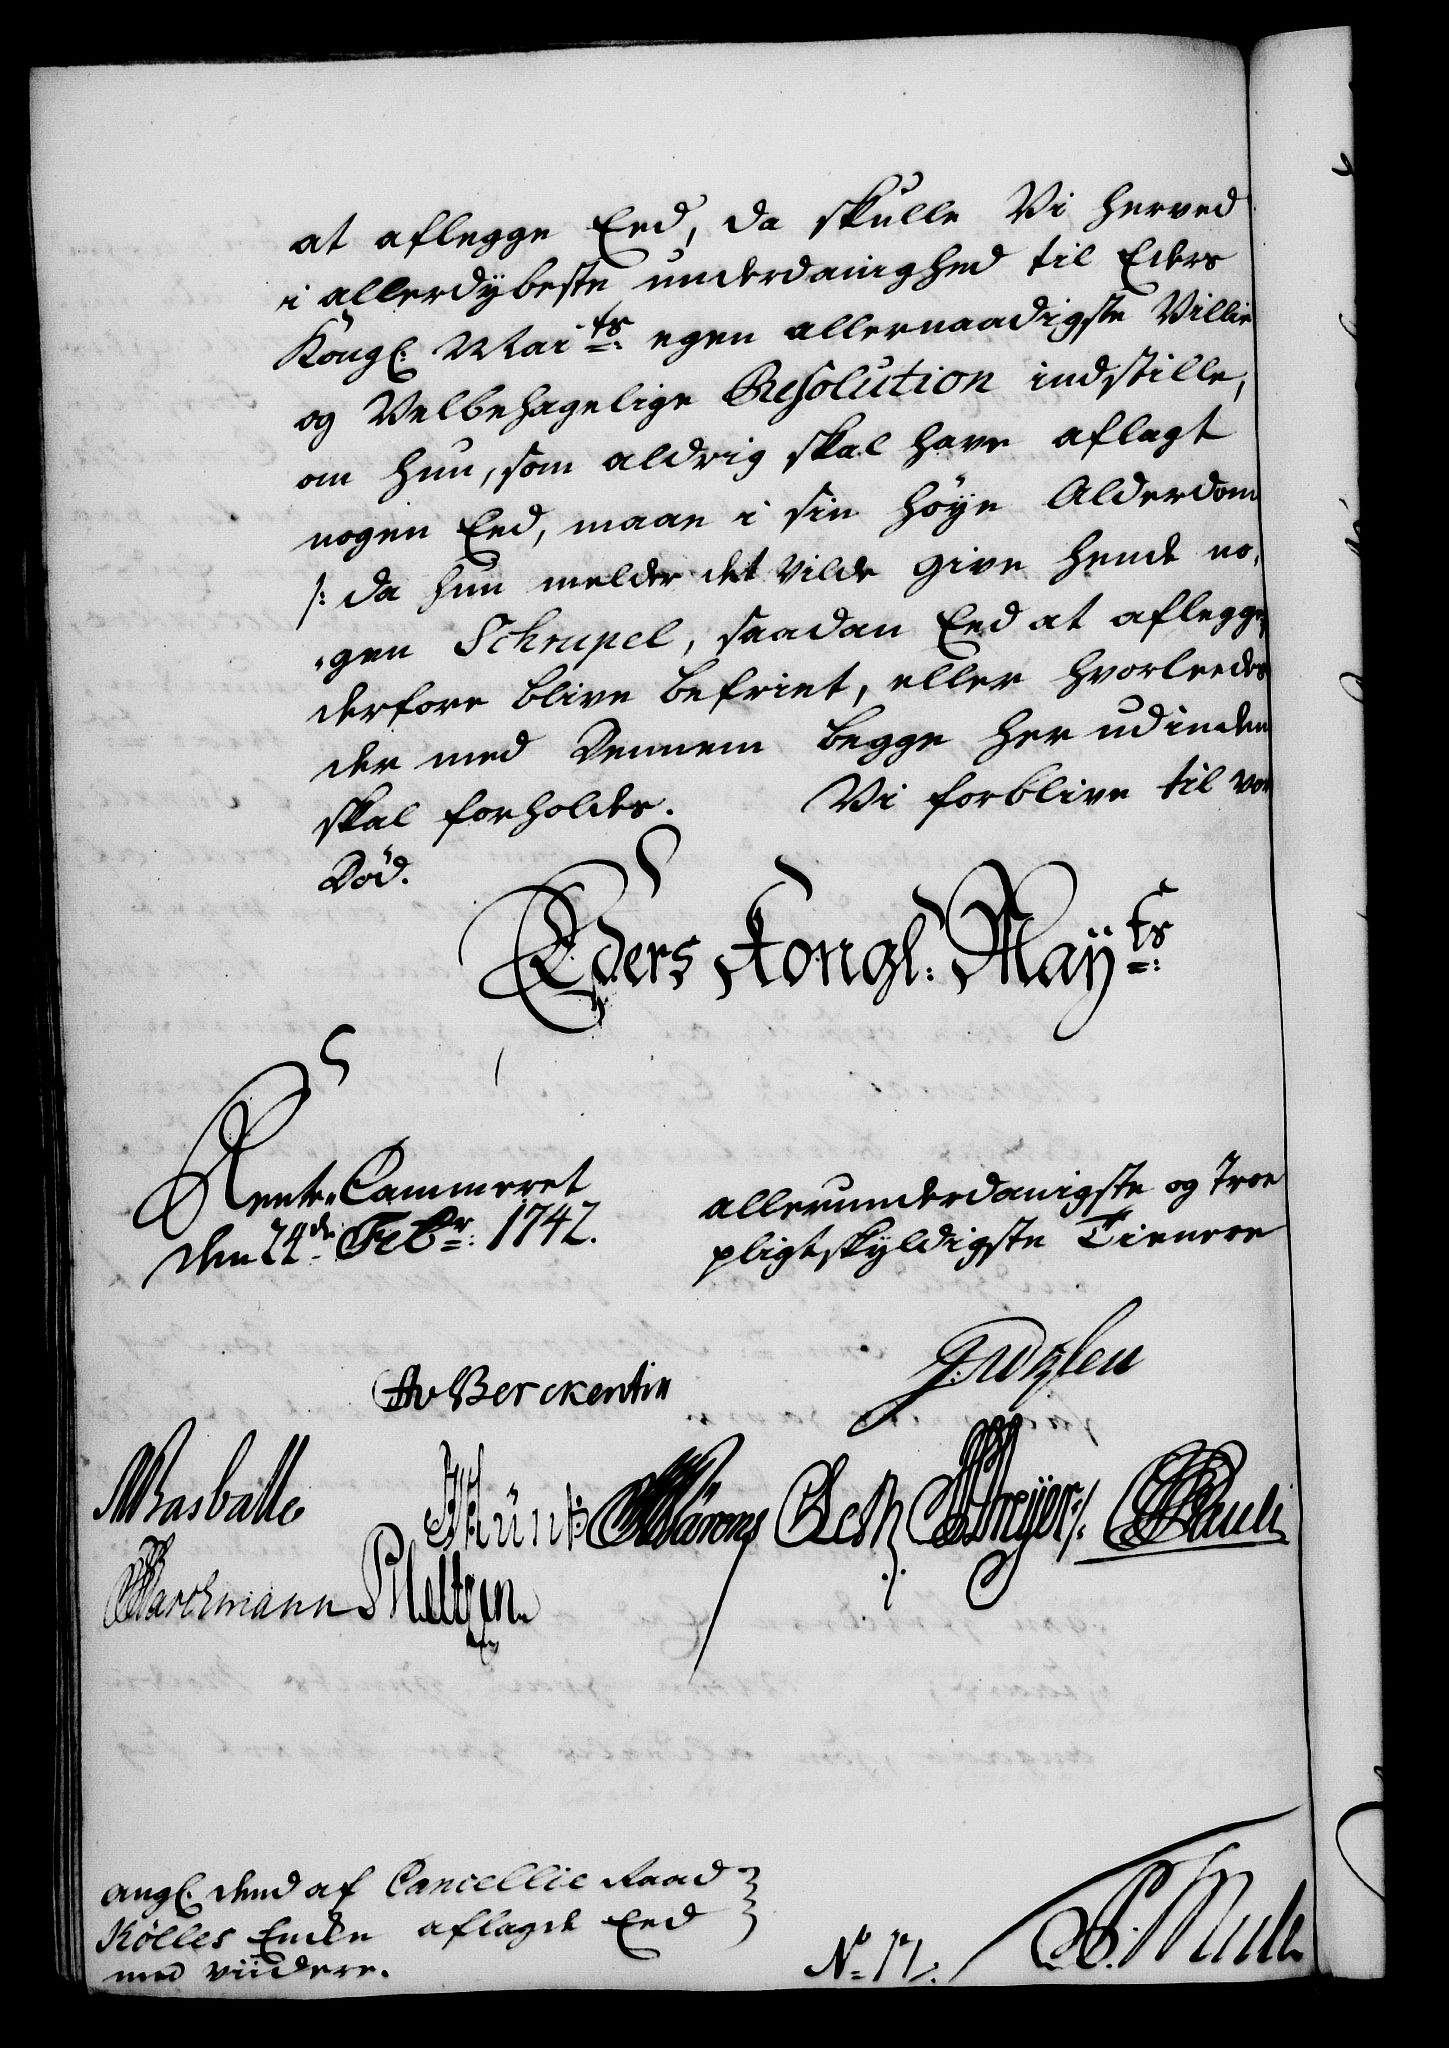 at aflegge Eed, da skulle Vi herved
i allerdybeste underdanighed til Eders
Kongl. Mai^ts: egen allernaadigste Villie
og Velbehagelige Resolution indstille,
om hun, som aldrig skal have aflagt
nogen Eed, maae i sin høye Alderdom
/: da hun melder det vilde give hende no,
,gen Schrupel, saadan Eed at aflegge,
derfore blive befriet, eller hvorleedes
der med Dennem begge her udinden
skal forholdes. Vi forblive til vor
Död.
Eders Kongl: May^ts:
Rente, Cammeret
den 24^de Feb^r: 1742.
allerunderdanigste og Troe
pligtskyldigste Tienere
v Berckentin
Basballe
Münk Kørens Selk Meyer /. Pauli
Barchmann PMeltzen
angl. dend af Cancellie Raad
Kølles Encke aflagde Eed
med viidere.
N^o 17/.